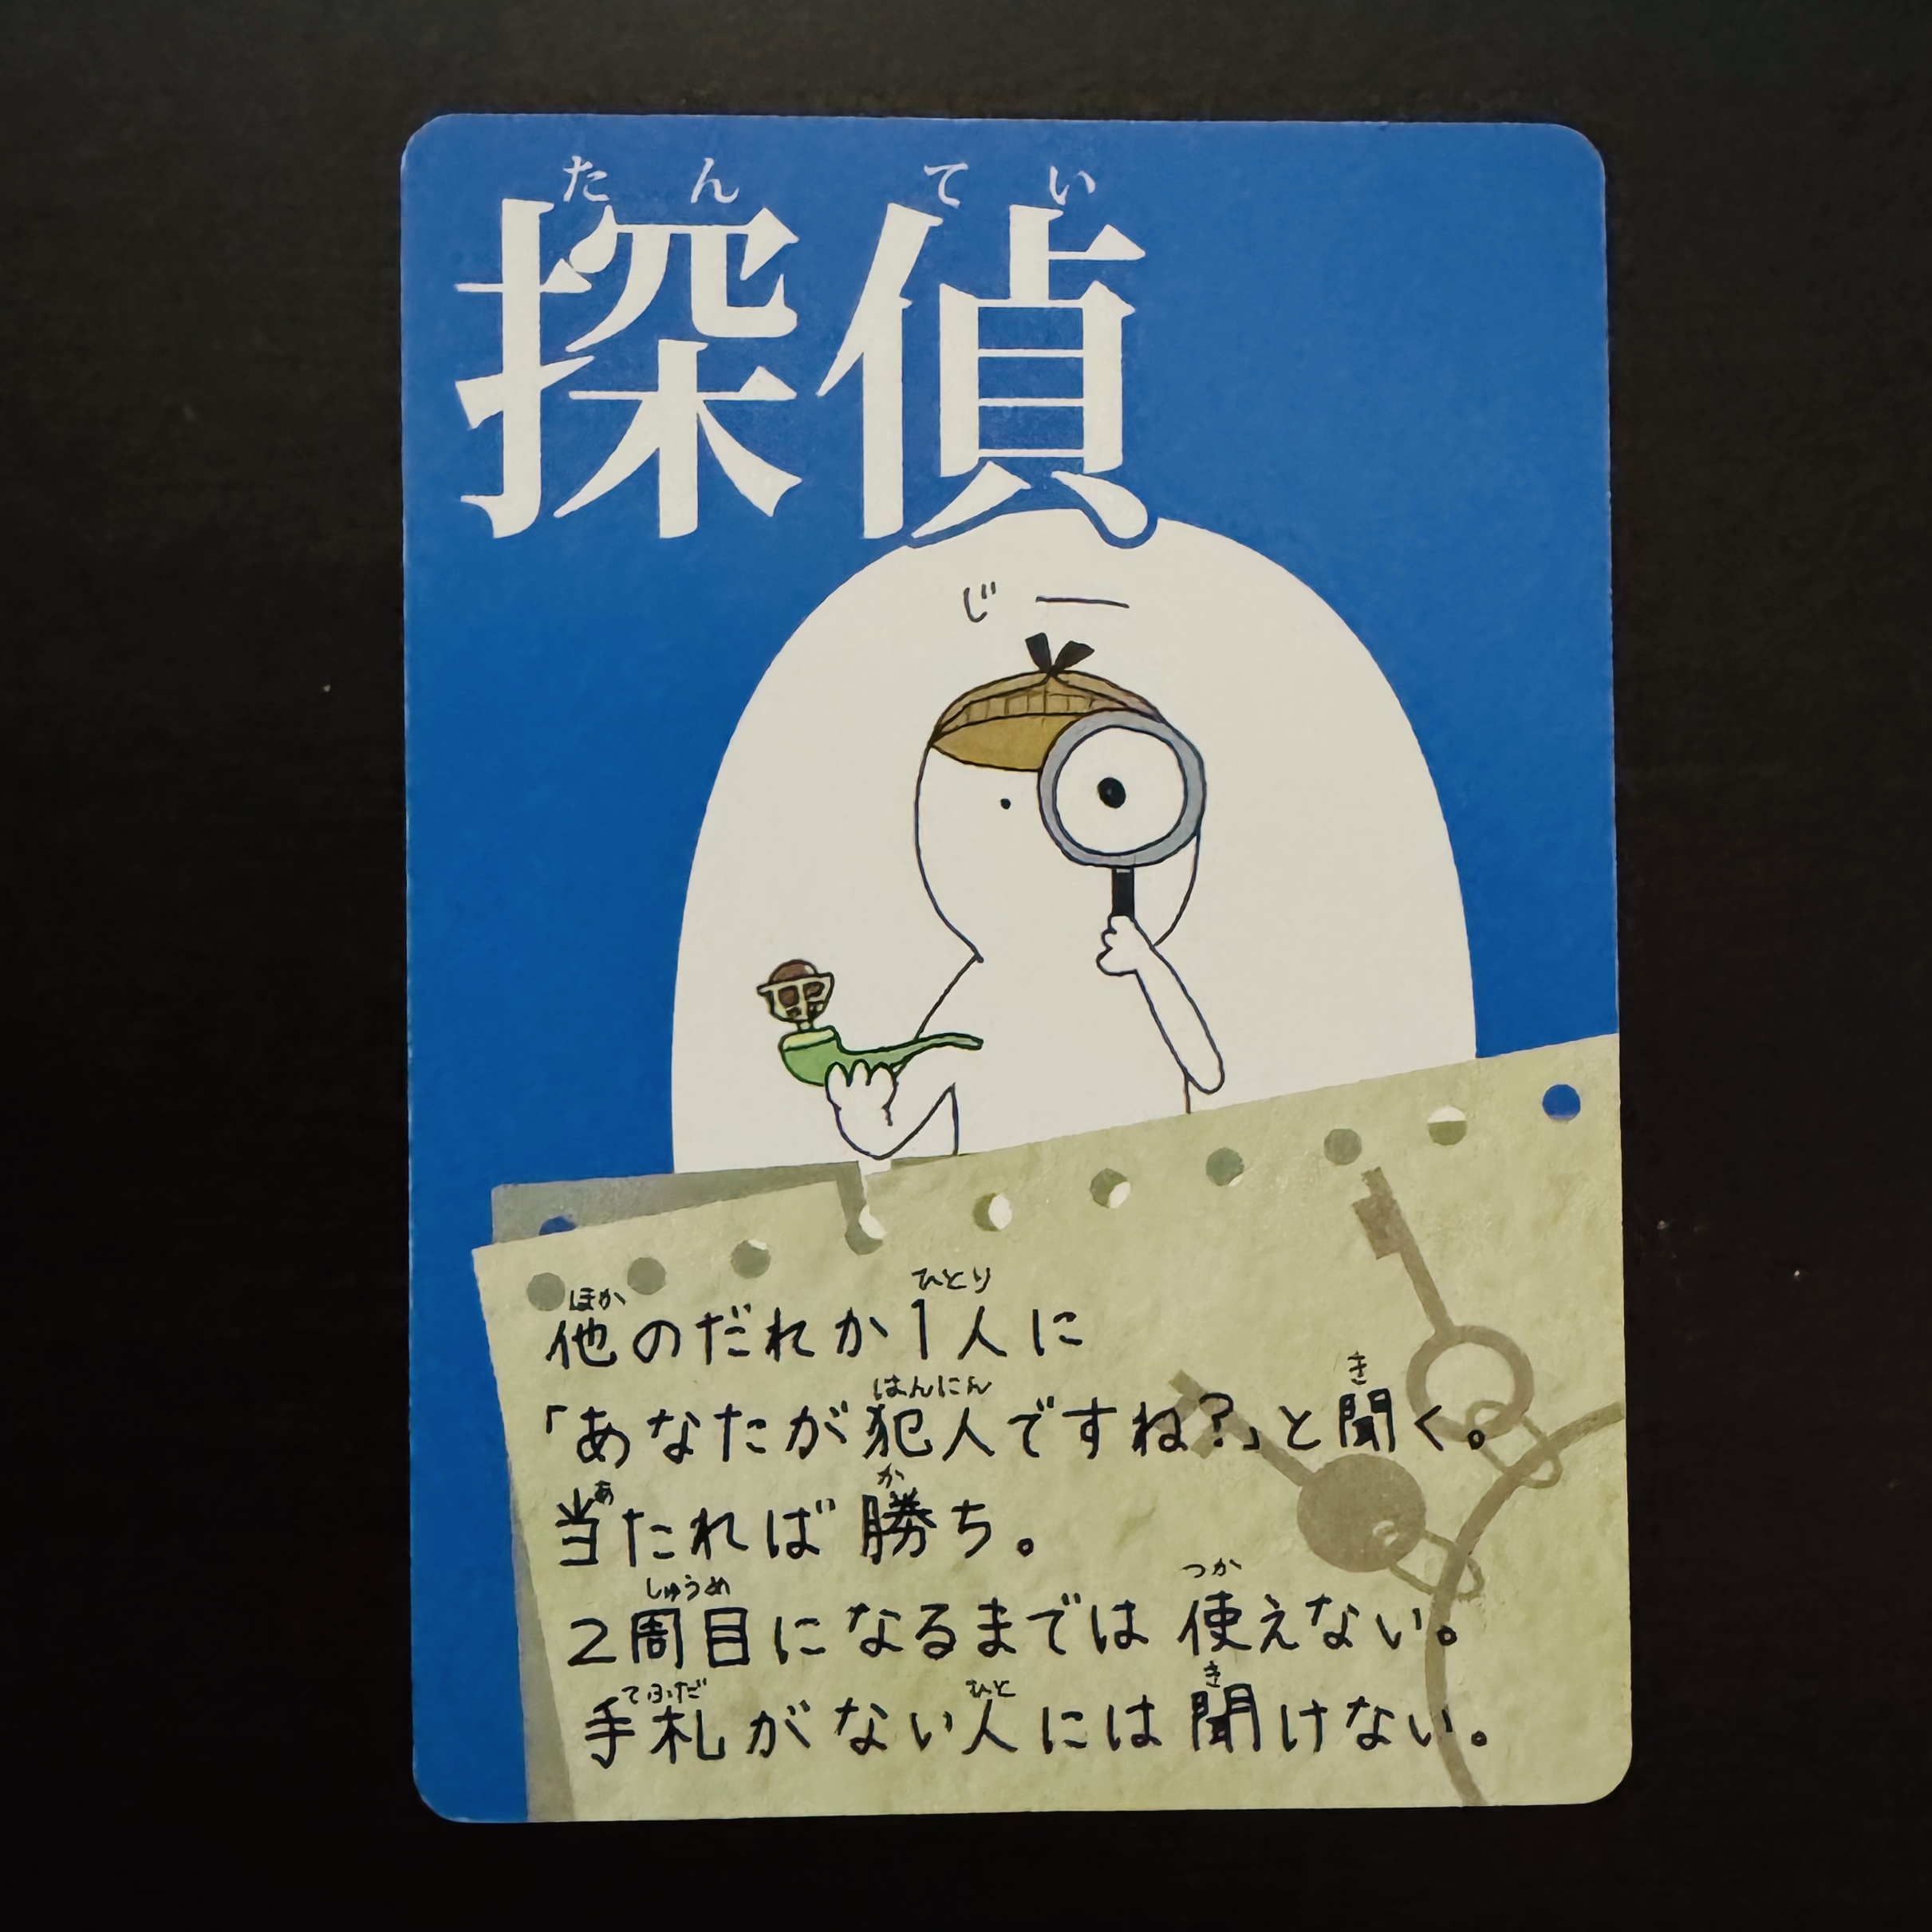 たんてい
探偵
じー
ほか ひとり
他のだれか1人に
はんにん き
「あなたが犯人ですね?」と聞く。
あ か
当たれば勝ち。
しゅうめ つか
2周目になるまでは使えない。
てふだ ひと き
手札がない人には聞けない。